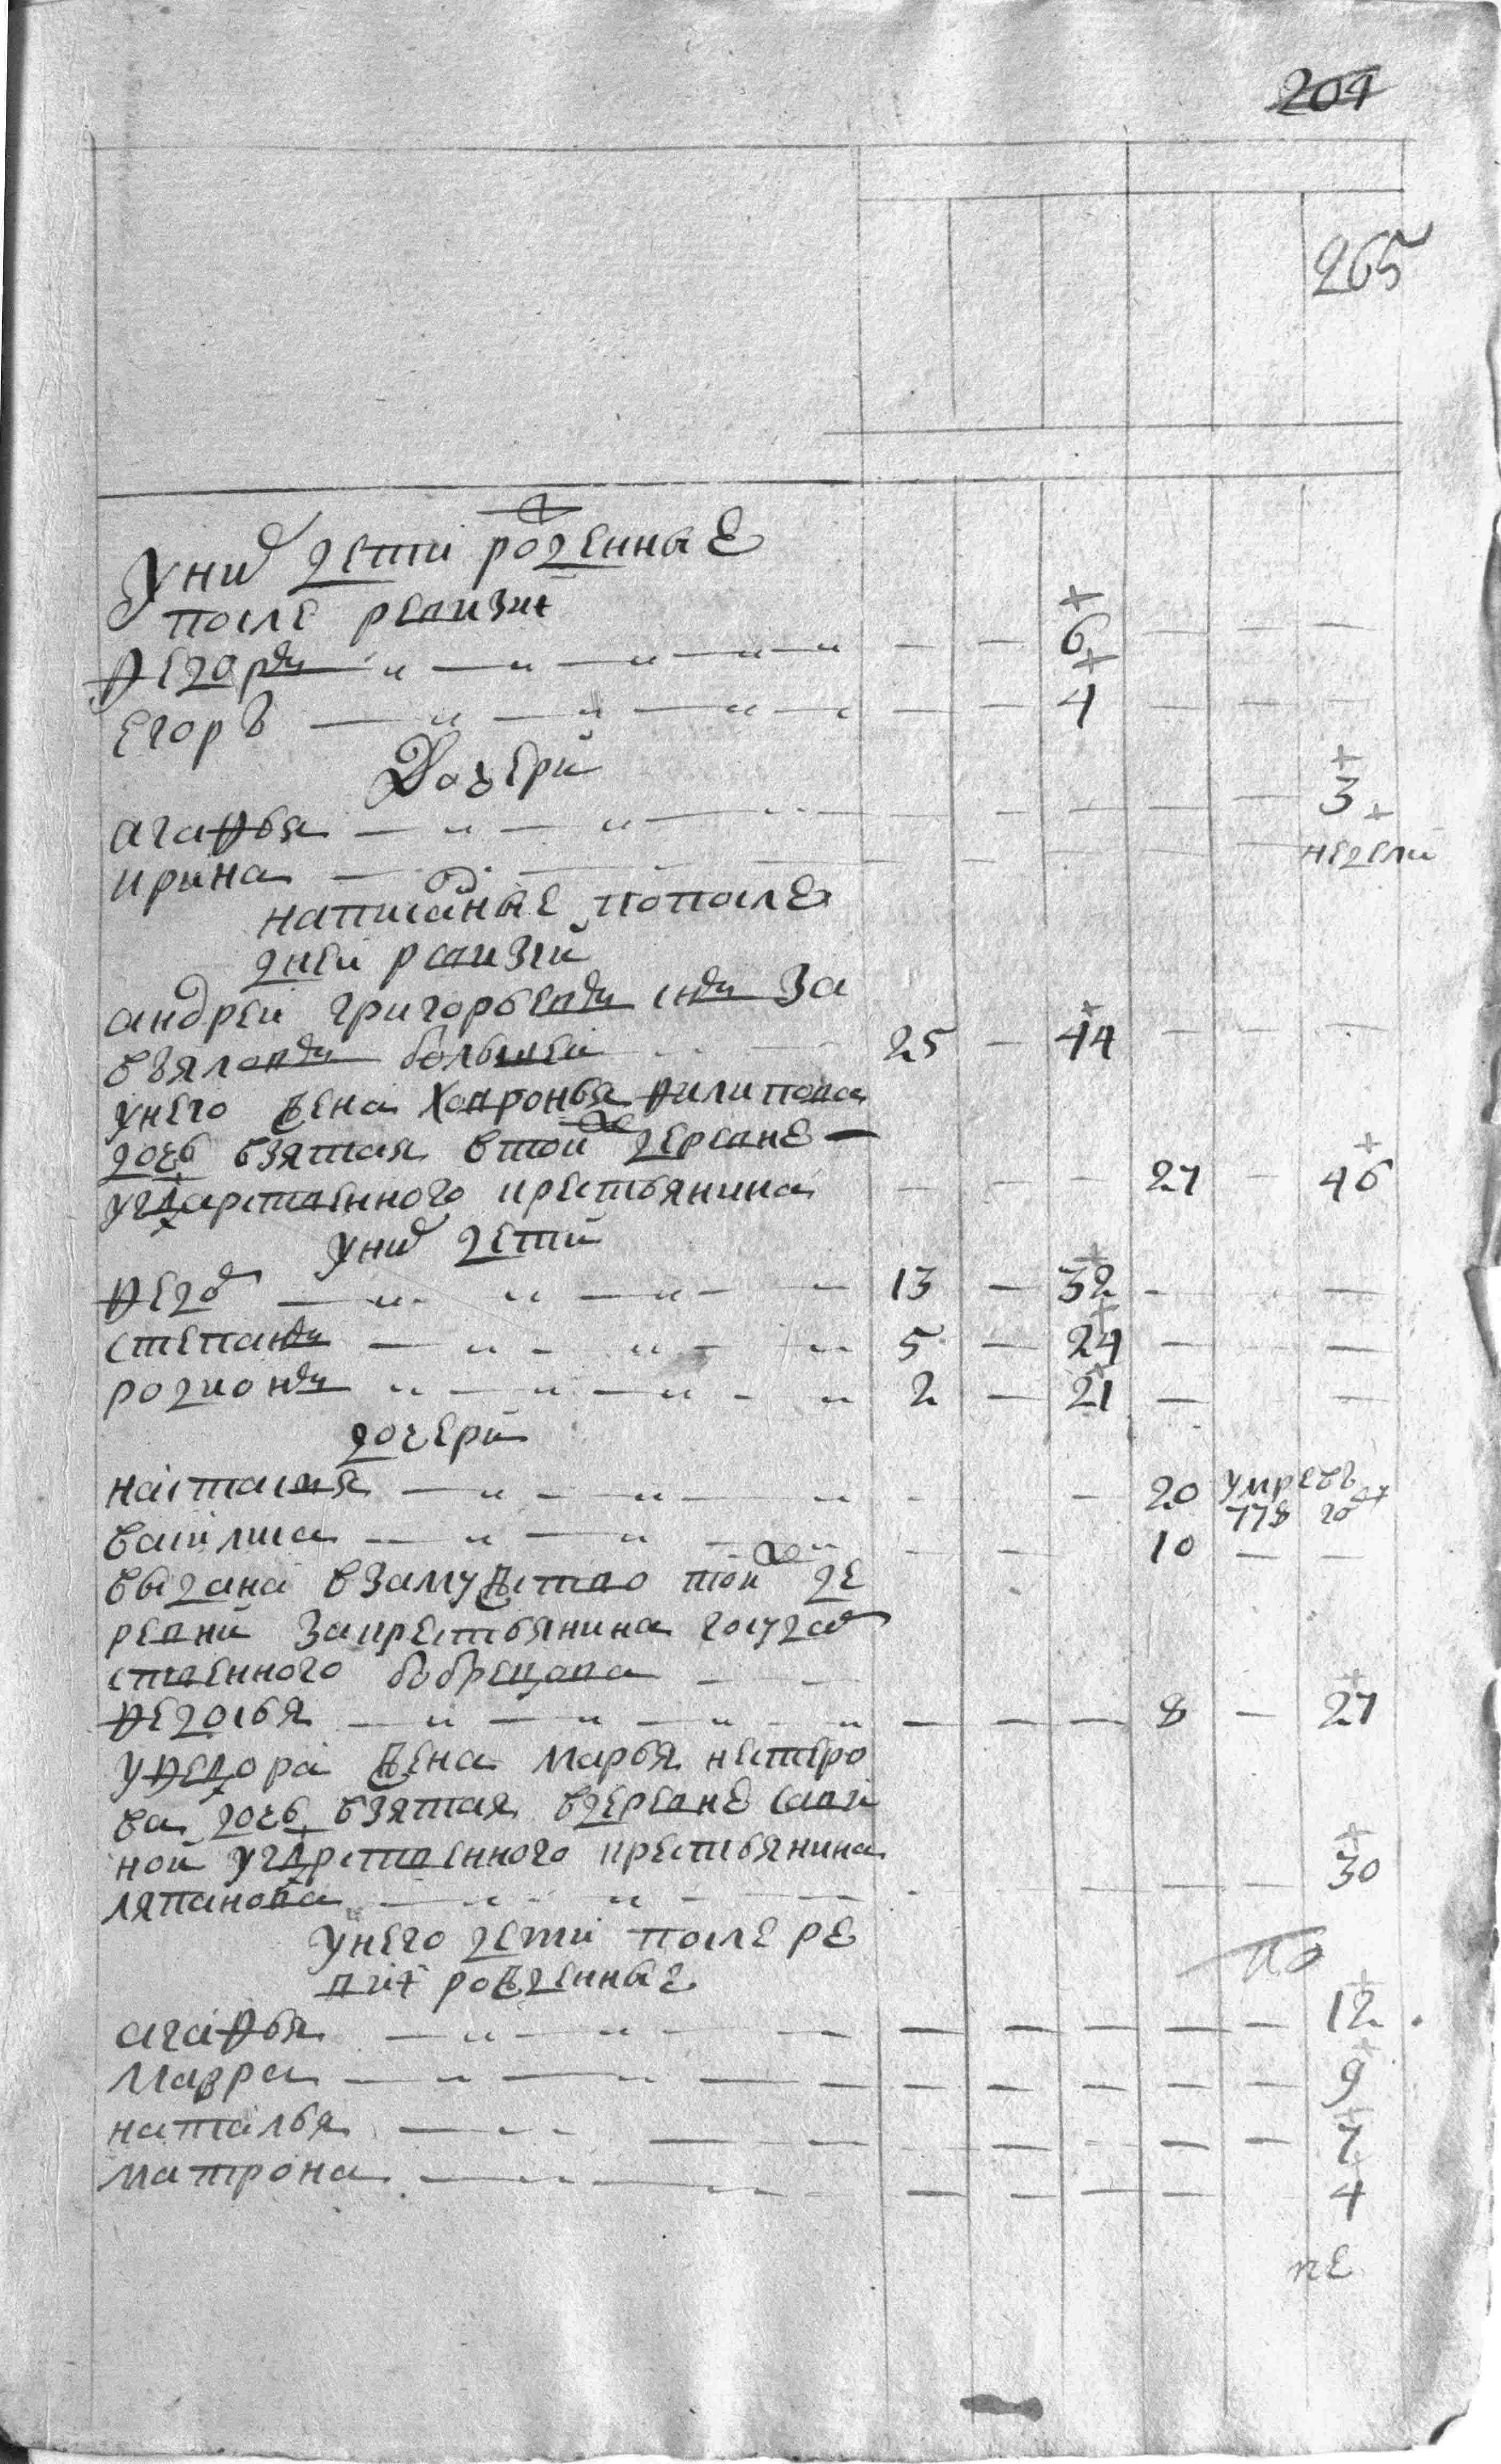 204
265
У них дети роденные
после ревизии
Федоръ 6
Егоръ 4
Дочери
Агафья 3
Ирина недели
написанные по после
дней ревизии
Андрей Григорьевъ сынъ За
вьяловъ большей 25 44
У него жена Ховронья Филипова
дочь взятая в той деревне
у гдарственного крестьянина 27 46
У них дети
Федоръ 13 32
Степанъ 5 24
Родионъ 2 21
дочери
Настасья 20 умре въ
778 году
Василиса 10
выдана в замужство той де
ревни за крестьянина государ
ственного Бобрецова
Федосья 8 27
У Федора жена Марья Нестеро
ва дочь взятая в деревне Сави
ной у гдрственного крестьянина
Ляпанова 30
У него дети после ре
виi рожденные
Агафья 12
Мавра 9
Наталья 7
Матрона 4